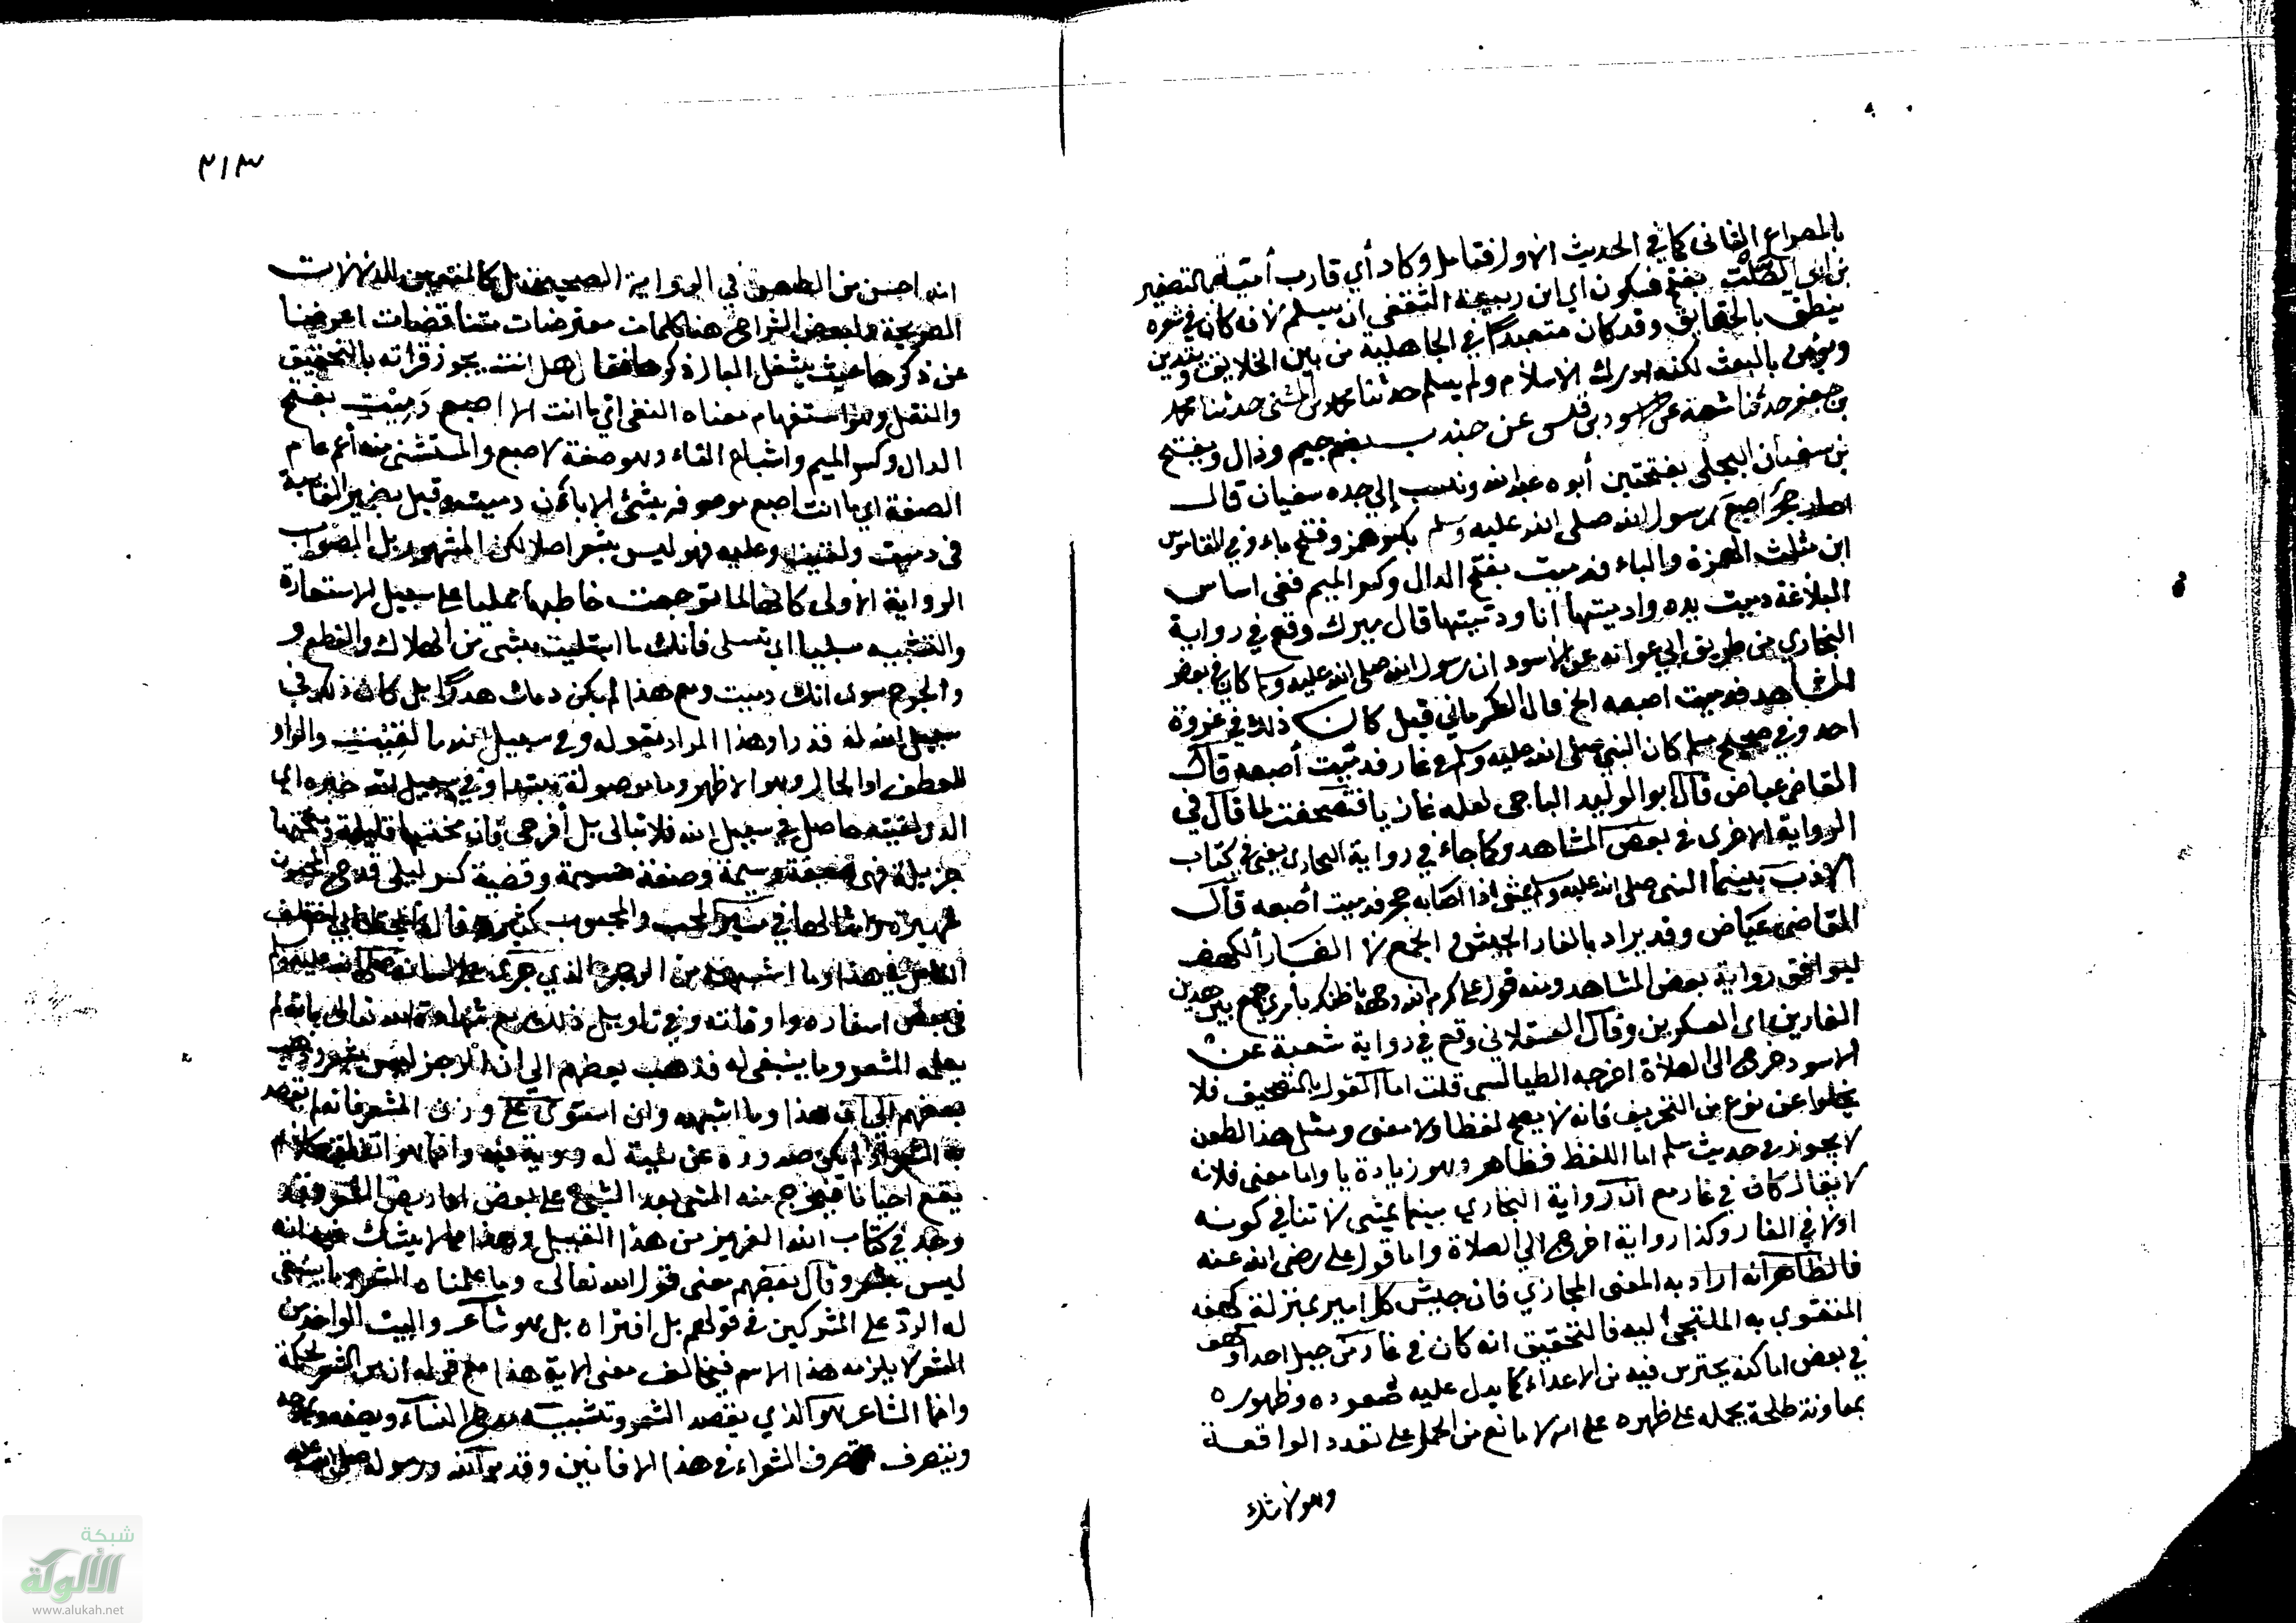 بالمصراع الثاني كما في الحديث الاول فتامل وكاد أي قارب أمية بالتصغير
بن ابي الصَّلْت بفتح فسكون اي ابن ربيعة الثقفي ان يسلم لانه كان في شعره
ينطق بالحقايق وقد كان متعبدا في الجاهلية من بين الخلايق ويتدين
ويؤمن بالبعث لكنه ادرك الاسلام ولم يسلم حدثنا محمد بن المثنى حدثنا محمد
بن جعفر حدثنا شعبة عن الاسود بن قيس عن جندب بضم جيم ودال وبفتح
بن سفيان البجلي بفتحتين أبوه عبد الله ونسب إلى جده سفيان قال
اصاب حجر اصبع رسول الله صلى الله عليه وسلم بكسر همز وفتح باء وفي القاموس
انه مثلث الهمزة والباء فدميت بفتح الدال وكسر الميم ففي اساس
البلاغة دميت يده وادميتها أنا ودميتها قال ميرك وقع في رواية
البخاري من طريق ابي عوانة عن الاسود ان رسول الله صلى الله عليه وسلم كان في بعض
المشاهد فدميت اصبعه الخ قال الكرماني قيل كان ذلك في غزوة
احد وفي صحيح مسلم كان النبي صلى الله عليه وسلم في غار فدميت أصبعه قال
القاضي عياض قال ابو الوليد الباجي لعله غازيا فتصحفت لما قال في
الرواية الاخرى في بعض المشاهد وكما جاء في رواية البخاري يعني في كتاب
الادب بينما النبي صلى الله عليه وسلم يمشي اذا اصابه حجر فدميت أصبعه قال
القاضي عياض وقد يراد بالغار الجيش والجمع لا الغار ألكهف
ليوافق رواية بعض المشاهد ومنه قول علي كرم الله وجهه ما ظنكم بأمرئ جمع بين هذين
الغارين اي العسكرين وقال العسقلاني وقع في رواية شعبة عن
الاسود خرج الى الصلاة اخرجه الطيالسي قلت اما القول بالتصحيف فلا
يخلوا عن نوع من التحريف فانه لا يصح لفظا ولا معنى ومثل هذا الطعن
لا يجوز في حديث مسلم اما اللفظ فظاهر وهو زيادة يا واما معنى فلانه
لا يقال كان في غاز مع ان رواية البخاري بينما يمشي لا تنافي كونه
اولا في الغار وكذا رواية اخرج الى الصلاة واما قول علي رضي الله عنه
فالظاهر انه اراد به المعنى المجازي فان جيش كل امير بمنزلة كهفه
المتقوي به الملتجئ اليه فالتحقيق انه كان في غار من جبل احد أو كهف
في بعض اماكنه يحترس فيه من الاعداء كما يدل عليه صعوده وظهوره
بمعاونة طلحة يحمله على ظهره على انه لا مانع من الحمل على تعدد الواقعة
وهو لا شك
٢١٣
انه احسن من الطعن في الرواية الصحيحة بل كالمتعين للدلالات
الصريحة ولبعض الشراح هنا كلمات معترضات متناقضات اعرضنا
عن ذكرها حيث يشغل البال ذكرها فقال هل انت يجوز قراته بالتحقيق
والنقل وهو استفهام معناه النفي اي ما انت الا اصبع دَمِيْتِ بفتح
الدال وكسر الميم واشباع التاء وهو صفة لاصبع والمستثنى منه أعم عام
الصفة اي ما انت اصبع موصوفة بشئ الا بأن دميت وقيل بضمير الغايبة
في دميت ولقيت وعليه فهو ليس بشعر اصلا لكن المشهور بل الصواب
الرواية الاولى كانها لما توجعت خاطبها مسليا على سبيل الاستعارة
والتشبيه مسليا اي تسلى فأنك ما ابتليت بشئ من الهلاك والقطع و
والجرح سوى انك دميت ومع هذا لم يكن دمك هدرا بل كان ذلك في
سبيل الله له قدرا وهذا المراد بقوله وفي سبيل الله ما لقيت والواو
للعطف او الحال وهو الاظهر وما موصولة مبتدا وفي سبيل الله خبره اي
الذي لقيته حاصل في سبيل الله فلا تبالي بل أفرحي فان محنتها قليلة ومنحتها
جزيلة فهي وسيمة وصفة جسيمة وقضية كسر ليلى قدح المجنون
شهيرة وامثالها في سير المحب والمحبوب كثيرة قال الخطابي اختلف
الناس في هذا وما اشبهه من الرجز الذي جرى على لسانه صلى الله عليه وسلم
في بعض اسفاره واوقاته وفي تاويل ذلك مع شهادة الله تعالى بانه لم
يعلمه الشعر وما ينبغي له فذهب بعضهم الى ان الرجز ليس بشعر وذهب
بعضهم الى ان هذا وما اشبهه وان استوى على وزن الشعر فانه لم يقصد
به الشعر اذ لم يكن صدوره عن نية له وروية فيه وانما هو اتفاق كلام
يقع احيانا فيخرج منه الشئ بعد الشئ على بعض اعاريض الشعر وقد
وجد في كتاب الله العزيز من هذا القبيل وهذا مما لا يشك فيه انه
ليس بشعر وقال بعضهم معنى قول الله تعالى وما علمناه الشعر وما ينبغي
له الرد على المشركين في قولهم بل افتراه بل هو شاعر والبيت الواحد من
الشعر لا يلزمه هذا الاسم فيخالف معنى الاية هذا مع قوله ان من الشعر لحكمة
وانما الشاعر هو الذي يقصد الشعر وتشبيبه ومدح النساء ويصفه ويمدحه
ويتصرف تصرف الشعراء في هذا الافانين وقد برأ الله ورسوله صلى الله عليه
شبكة
الألوكة
www.alukah.net